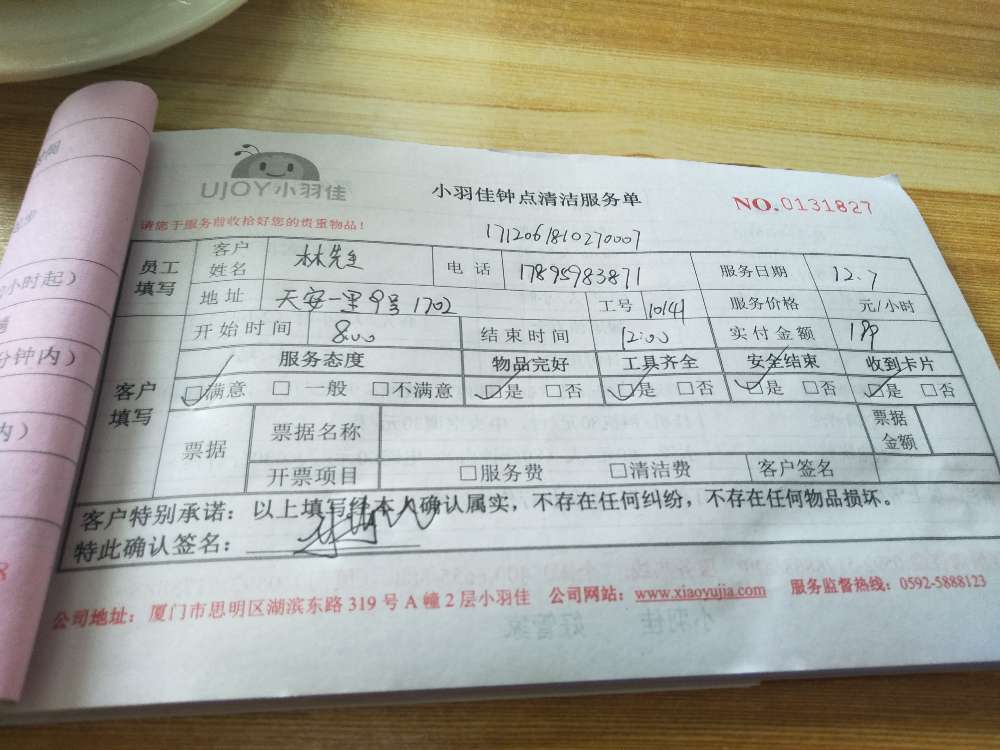 UJOY小羽佳
小羽佳钟点清洁服务单
NO.0131827
请您于服务前收拾好您的贵重物品!
1712061810270007
员工填写 客户姓名 林先生 电话 17895983871 服务日期 12.7
地址 天安一里9号1702 工号 10141 服务价格 元/小时
开始时间 8:00 结束时间 12:00 实付金额 199
客户填写 服务态度 物品完好 工具齐全 安全结束 收到卡片
☑满意 □ 一般 □不满意 ☑是 □否 ☑是 □否 ☑是 □否 ☑是 □否
票据 票据名称 票据金额
开票项目 □服务费 □清洁费 客户签名
客户特别承诺:以上填写经本人确认属实,不存在任何纠纷,不存在任何物品损坏。
特此确认签名:
公司地址:厦门市思明区湖滨东路 319 号 A 幢 2 层小羽佳 公司网站:www.xiaoyujia.com 服务监督热线:0592-5888123
小时起)
分钟内)
内)